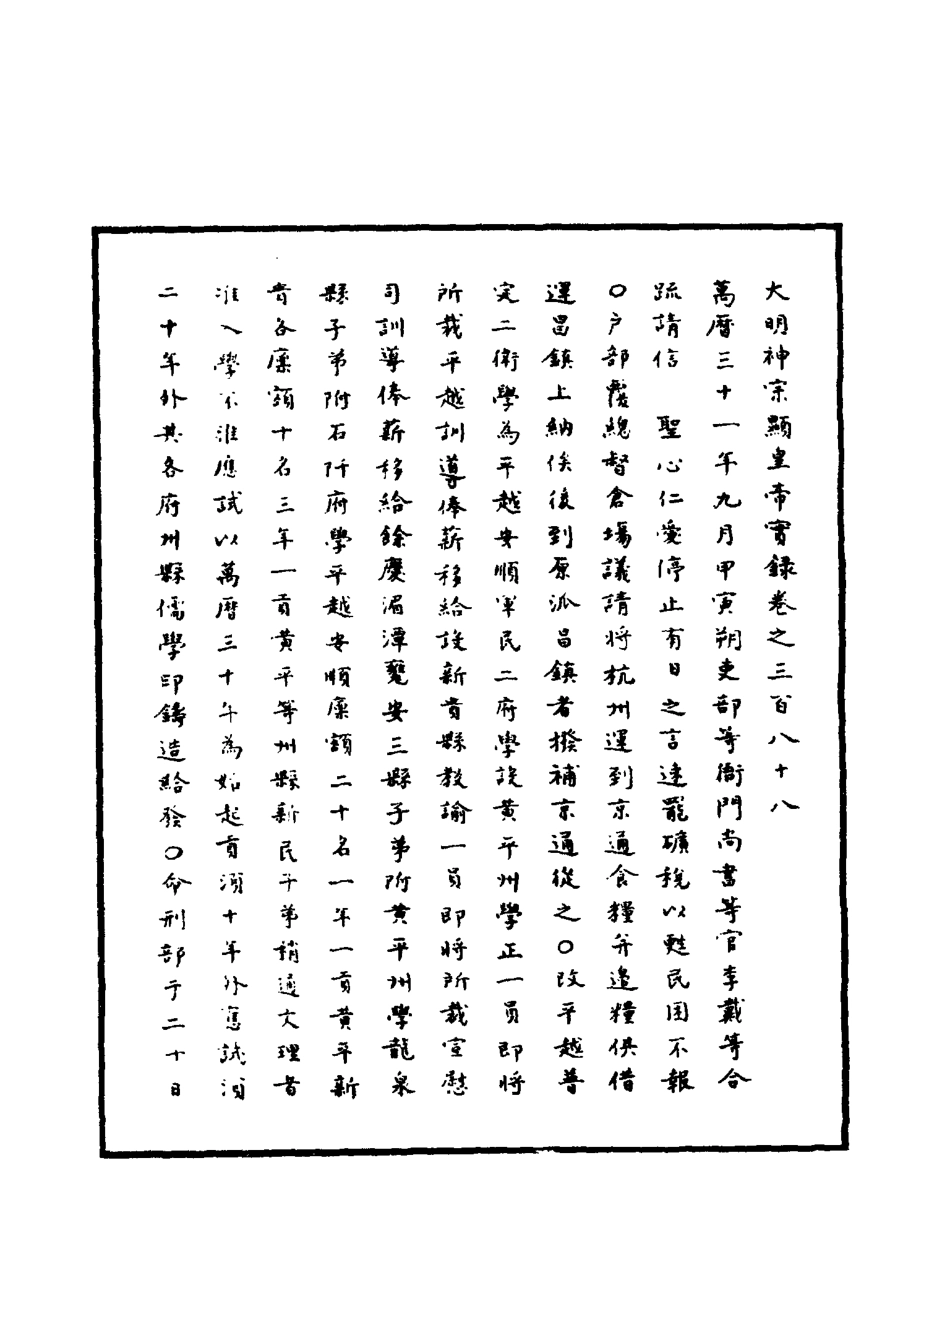 大明神宗顯皇帝實錄卷之三百八十八
萬曆三十一年九月甲寅朔吏部等衙門尚書等官李戴等合
疏請信　聖心仁愛停止有日之言速罷礦稅以甦民困不報
○户部覆總督倉場議請將杭州運到京通食糧并邉糧俱借
運昌鎮上納俟後到原派昌鎮者撥補京通從之○改平越普
定二衛學為平越安順軍民二府學設黃平州學正一員即將
所裁平越訓導俸薪移給設新貴縣教諭一員即將所裁宣慰
司訓導俸薪移給餘慶湄潭甕安三縣子弟附黃平州學龍泉
縣子弟附石阡府學平越安順廩額二十名一年一貢黃平新
貴各廩額十名三年一貢黃平等州縣新民子弟稍通文理者
准入學不准應試以萬曆三十年為始起貢須十年外應試須
二十年外其各府州縣儒學印鑄造給發○命刑部于二十日